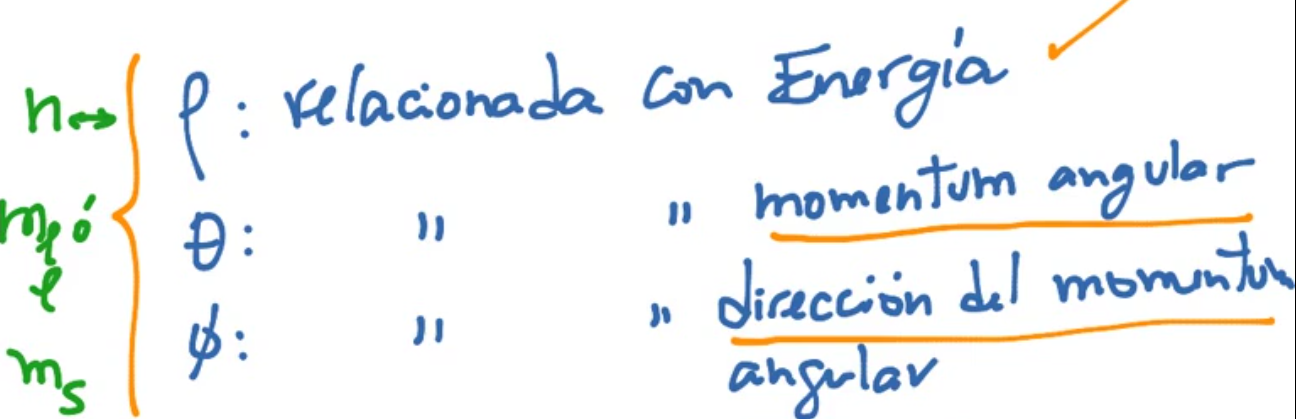 n↔ ρ: relacionada con Energía ✓
mℓ ó θ: " " momentum angular
ℓ
ϕ: " " dirección del momentum
ms angular